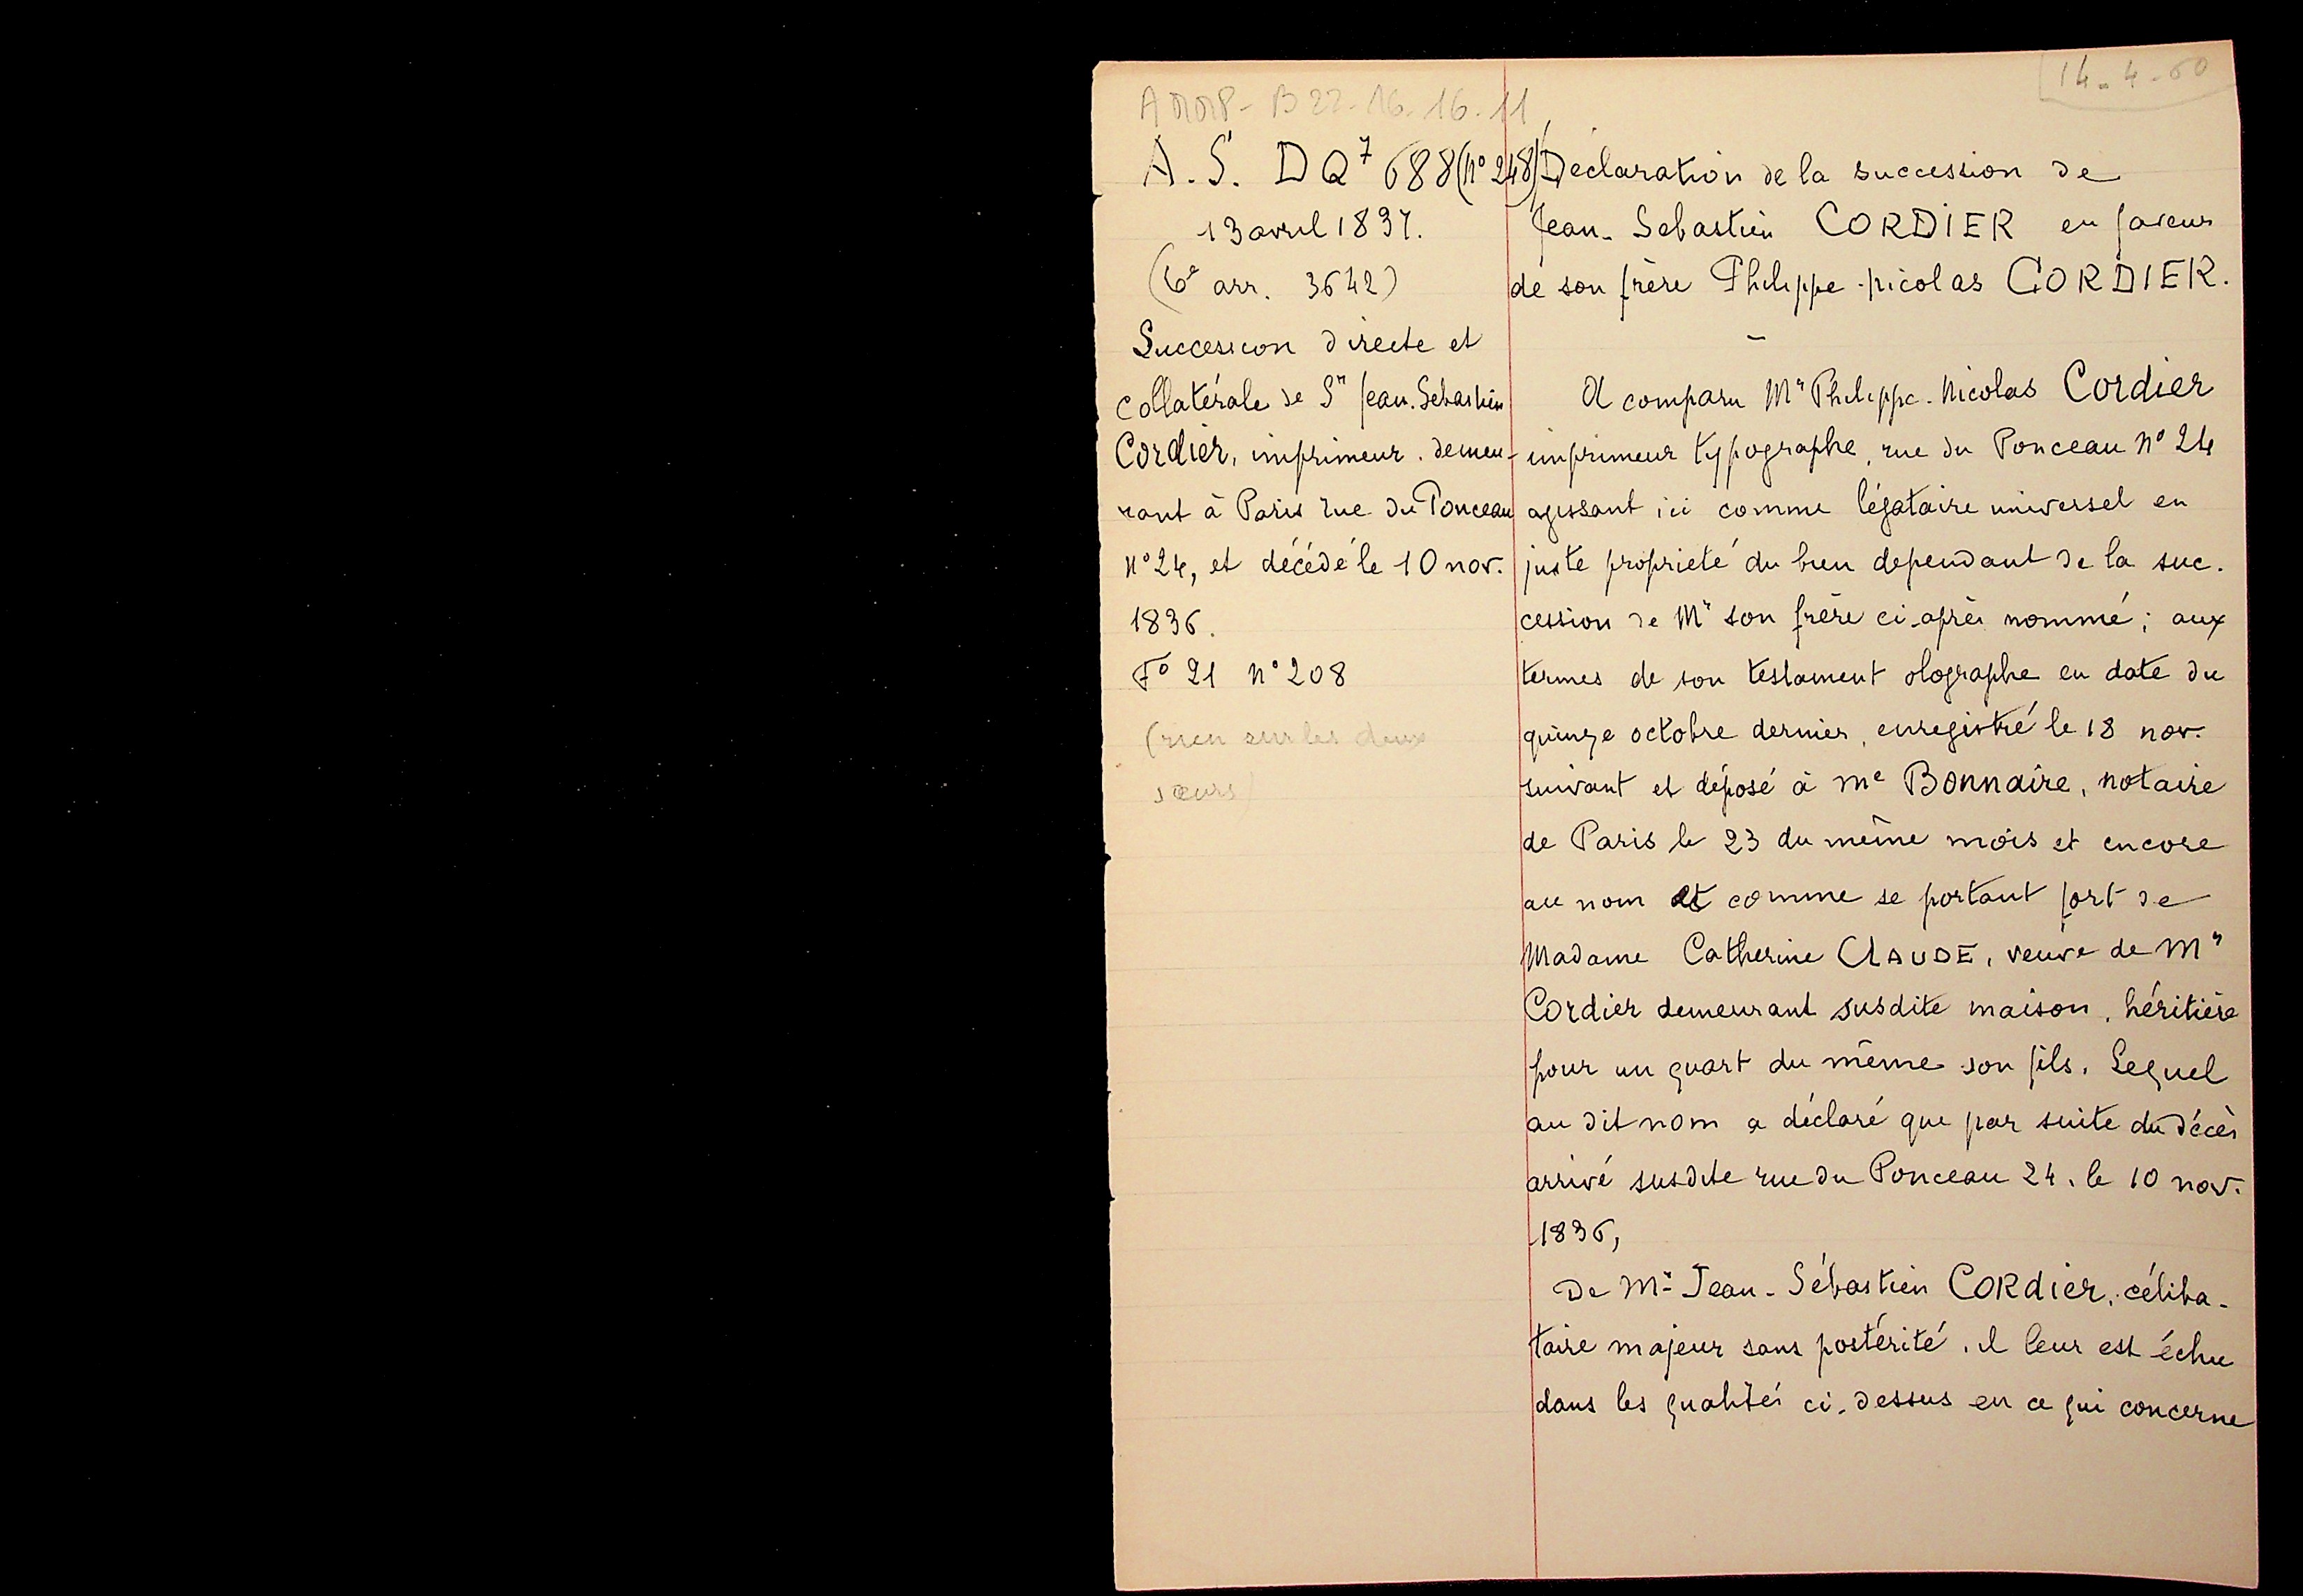 14-4-60
A.S. DQ⁷ 688 (n° 248)
13 avril 1837.
(6e arr. 3642)
Succession directe et
collatérale de Sr Jean-Sébastien
Cordier, imprimeur, demeu-
rant à Paris rue du Ponceau
n° 24, et décédé le 10 nov.
1836.
F° 21 n° 208
(rien sur les deux
sœurs)
Déclaration de la succession de
Jean-Sebastien CORDIER en faveur
de son frère Philippe-Nicolas CORDIER.
A comparu Mr Philippe-Nicolas Cordier
imprimeur typographe, rue du Ponceau N° 24
agissant ici comme légataire universel en
juste propriété du bien dependant de la suc-
cession de Mr son frère ci-après nommé; aux
termes de son testament olographe en date du
quinze octobre dernier, enregistré le 18 nov.
suivant et déposé à Me Bonnaire, notaire
de Paris le 23 du même mois et encore
au nom et comme se portant fort de
Madame Catherine CLAUDE, veuve de Mr
Cordier demeurant susdite maison, héritière
pour un quart du même son fils. Lequel
au dit nom a déclaré que par suite du décès
arrivé susdite rue du Ponceau 24, le 10 nov.
1836,
De Mr Jean-Sébastien CORdier, céliba-
taire majeur sans postérité, il leur est échu
dans les qualités ci-dessus en ce qui concerne